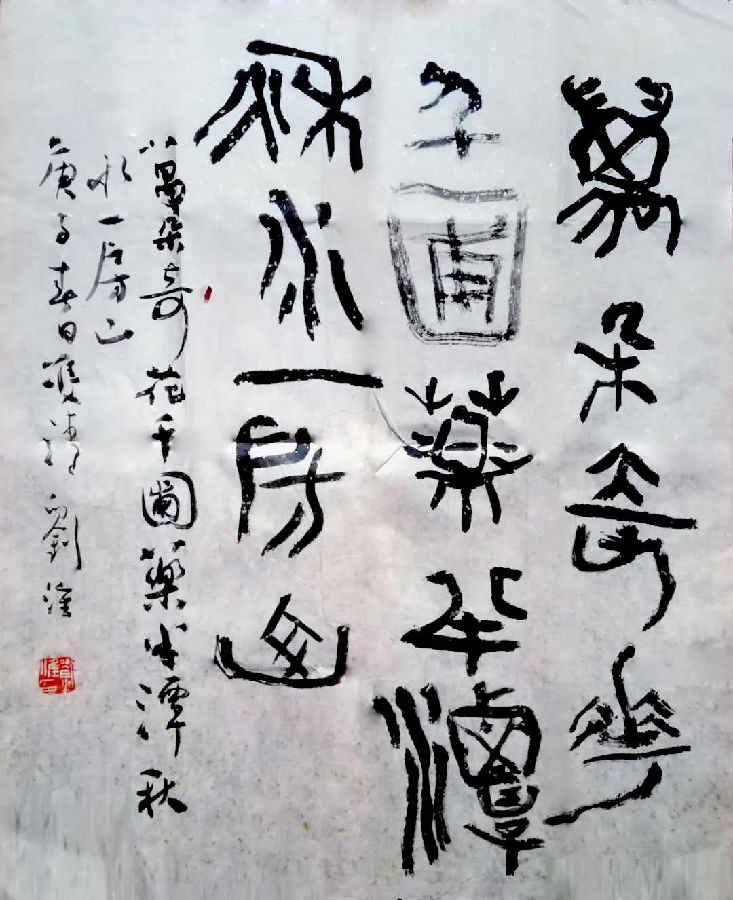 萬朵奇花
千圃藥半潭
秋水一房山
萬朵奇花千圃藥半潭秋
水一房山
庚子春日 劉